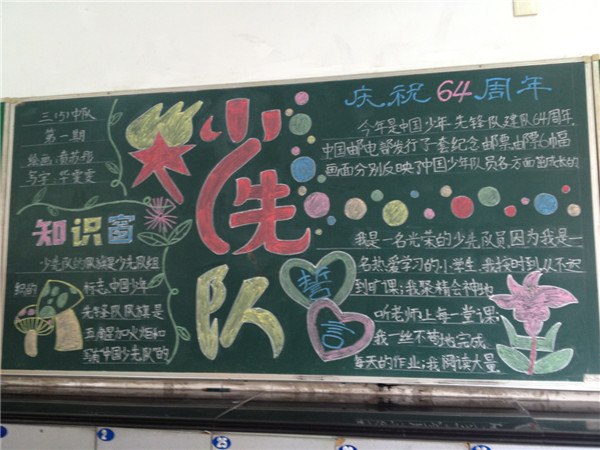 三(5)中队
第一期
绘画:袁苏彤
写字:华雯雯
知识窗
少先队的队旗是少先队组
织的标志,中国少年
先锋队队旗是
五角星加火炬和
写有"中国少先队"的
少先队
庆祝64周年
今年是中国少年先锋队建队64周年,
中国邮电部发行了一套纪念邮票,邮票6幅
画面分别反映了中国少年队员各方面茁壮成长的
誓言
我是一名光荣的少先队员,因为我是一
名热爱学习的小学生,我按时到从不迟
到旷课;我聚精会神地
听老师上每一堂课;
我一丝不苟地完成
每天的作业;我阅读大量
2
25